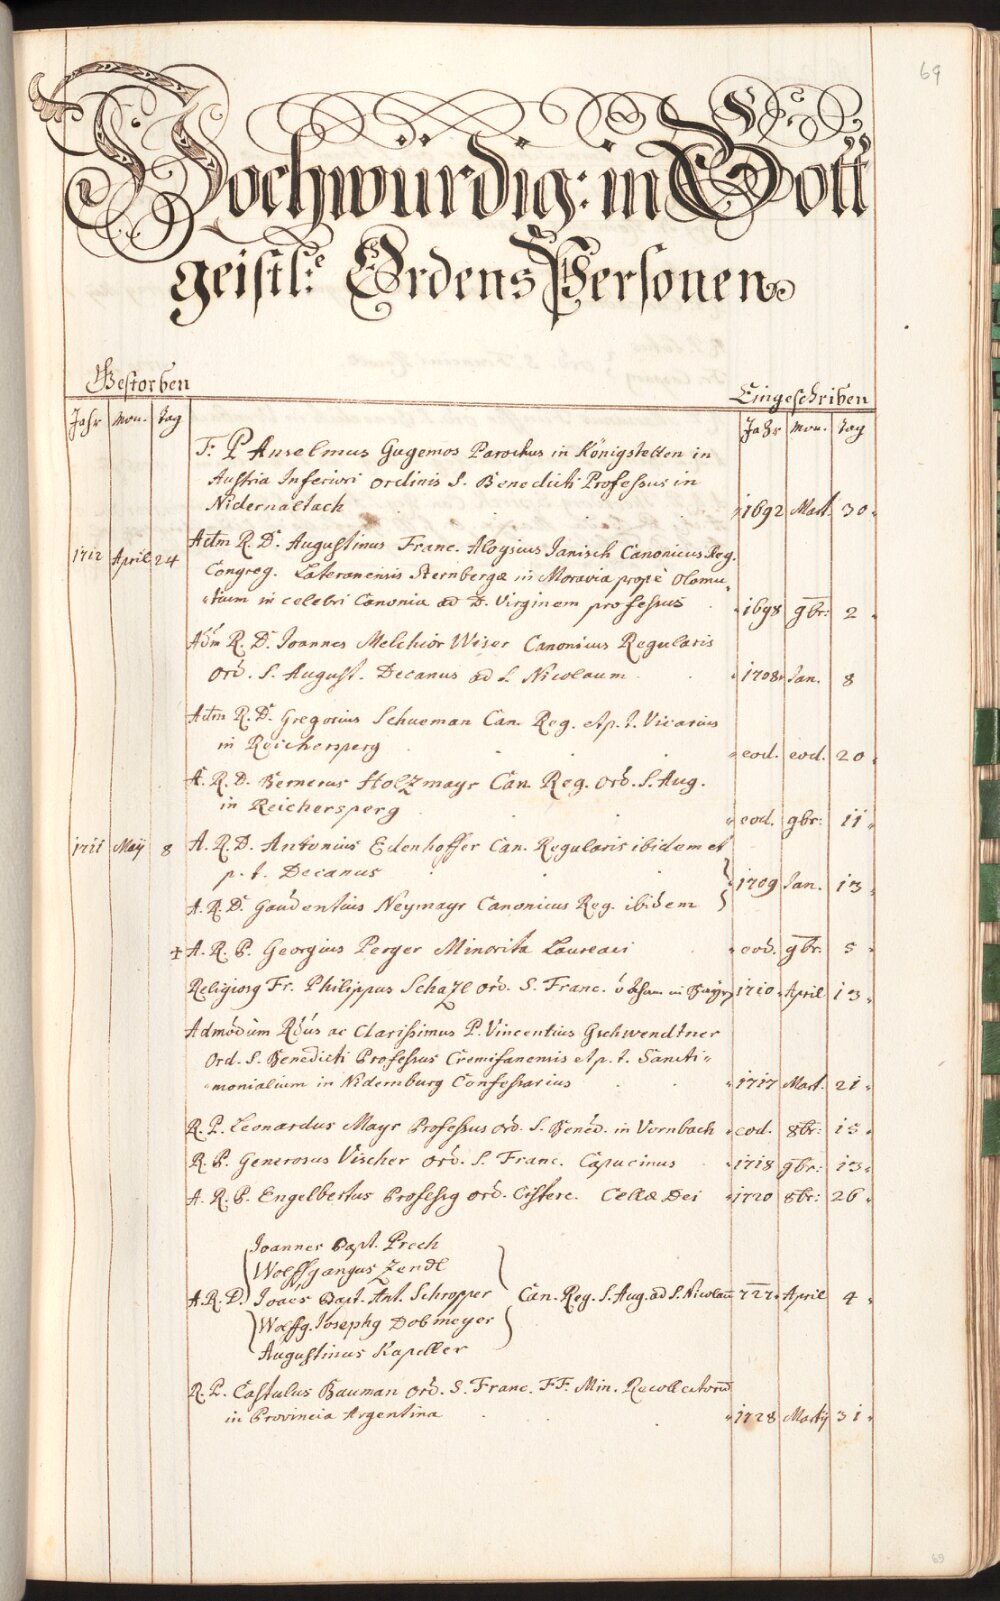 69
Hochwürdig: in Gott
geistl:e Ordens Personen
Gestorben
Eingeschriben
Jahr Mon. Tag
Jahr Mon. Tag
F. P Anselmus Gugemos Parochus in Königstetten in
Austria Inferiori ordinis S. Benedicti Professus in
Nidernaltach 1692 Mart. 30
1712 April 24 Adm R. D. Augustinus Franc. Aloysius Janisch Canonicus Reg.
Congreg. Lateranensis Sternbergæ in Moravia propè Olomu
tium in celebri Canonia ad D. Virginem professus 1698 9br: 2
Adm R. D. Joannes Melchior Wiser Canonicus Regularis
Ord. S. August. Decanus ad S. Nicolaum 1708 Jan. 8
Adm R. D. Gregorius Schueman Can. Reg. et p. t. Vicarius
in Reichersperg eod. eod. 20
A. R. D. Bernerus Holzmayr Can. Reg. Ord. S. Aug.
in Reichersperg eod. 9br: 11
1711 Maij 8 A. R. D. Antonius Edenhoffer Can. Regularis ibidem et
p. t. Decanus
1709 Jan. 13
A. R. D. Gaudentius Neymayr Canonicus Reg. ibidem
+ A. R. P. Georgius Perger Minorita Laureaci eod. 9br. 5
Religiosg Fr. Philippus Schazl Ord. S. Franc. in Bayr 1710 April 13
Admodum Rdus ac Clarissimus P. Vincentius Gschwendtner
Ord. S. Benedicti Professus Cremifanensis et p. t. Sancti
monialium in Nidernburg Confessarius 1717 Mart. 21
R. P. Leonardus Mayr Professus Ord. S. Bened. in Vornbach eod. 8br: 15
R. P. Generosus Vischer Ord. S. Franc. Capucinus 1718 9br: 13
A. R. P. Engelbertus Professg Ord. Cisterc. Cellæ Dei 1720 8br: 26
Joannes Bapt. Prech
Wolffgangus Zendl
A. R. D. Joaes Bapt. Ant. Schropper Can. Reg. S. Aug. ad S. Nicolau 727 April 4
Wolffg. Josephg Dobmeyer
Augustinus Kapeller
R. P. Castulus Bauman Ord. S. Franc. FF. Min. Recollectoru
in Provincia Argentina 1728 Martij 31
69